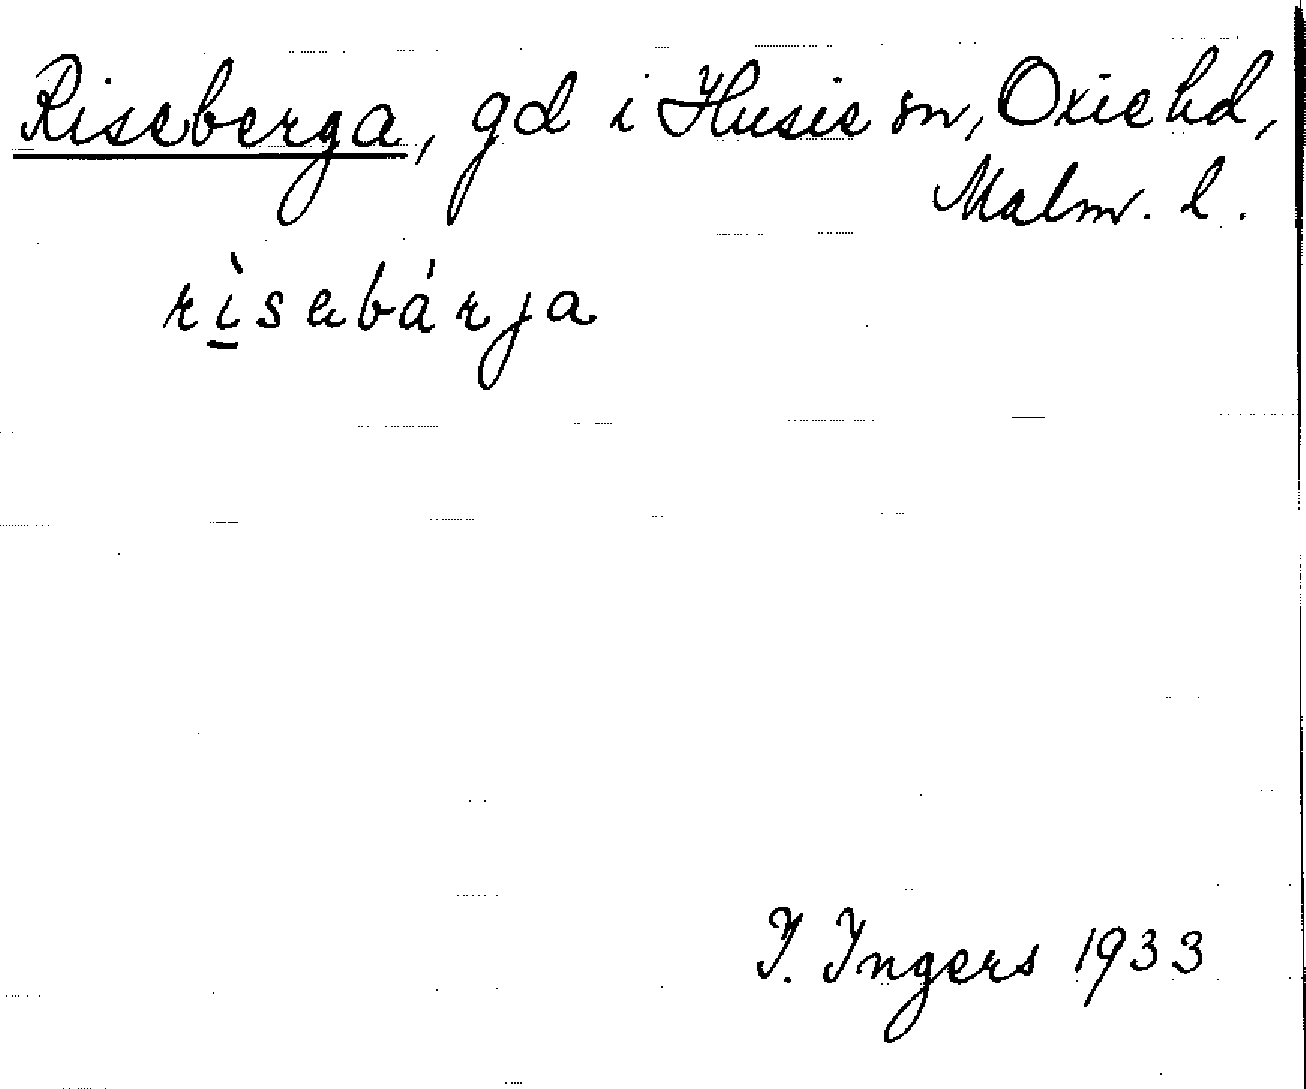 Riseberga, gd i Husie sn, Oxie hd,
Malm. l.
rì̱sabár̀ja
I. Ingers 1933